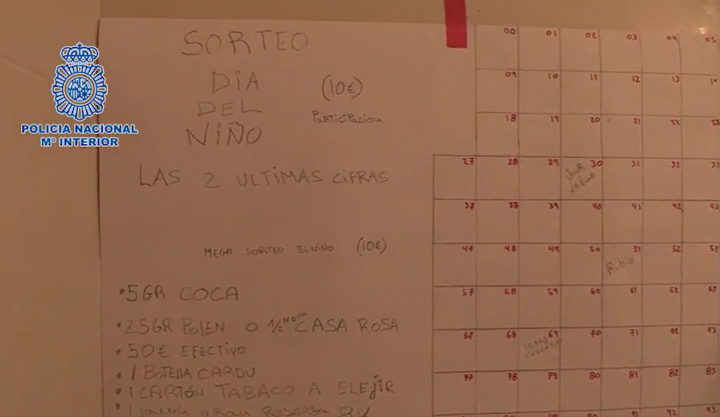 POLICIA NACIONAL
Mº INTERIOR
SORTEO
DIA
DEL
NIÑO
(10€)
PARTICIPACION
LAS 2 ULTIMAS CIFRAS
MEGA SORTEO EL NIÑO (10€)
•5GR COCA
•25GR POLEN O 1/2 CASA ROSA
•50€ EFECTIVO
•1 BOTELLA CARDU
•1 CARTÓN TABACO A ELEJIR
00 01 02 03 04 05
09 10 11 12 13 14
18 19 20 21 22 23
27 28 29 30 31 32 33
37 38 39 40 41 42 43
47 48 49 50 51 52 53
Rubio
57 58 59 60 61 62 63
67 68 69 70 71 72 73
77 78 79 80 81 82 83